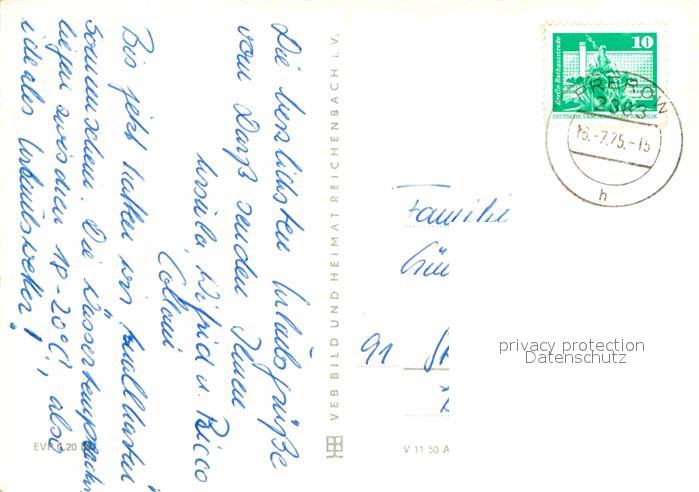 Die herzlichsten Urlaubsgrüße
vom Darß senden Ihnen
Ursula, Wigrid u. Ricco
Bis jetzt hatten wir knallharten
Sonnenschein. Die Wassertemperaturen
liegen zwischen 18-20°C, also
ideales Urlaubswetter!
EVP 0,20 M
VEB BILD UND HEIMAT REICHENBACH i. V.
10
Berlin, Rathausstraße
DEUTSCHE DEMOKRATISCHE REPUBLIK
PREROW
2383
16.-7.75.-15
h
Familie
91
V 11 50 A
privacy protection
Datenschutz